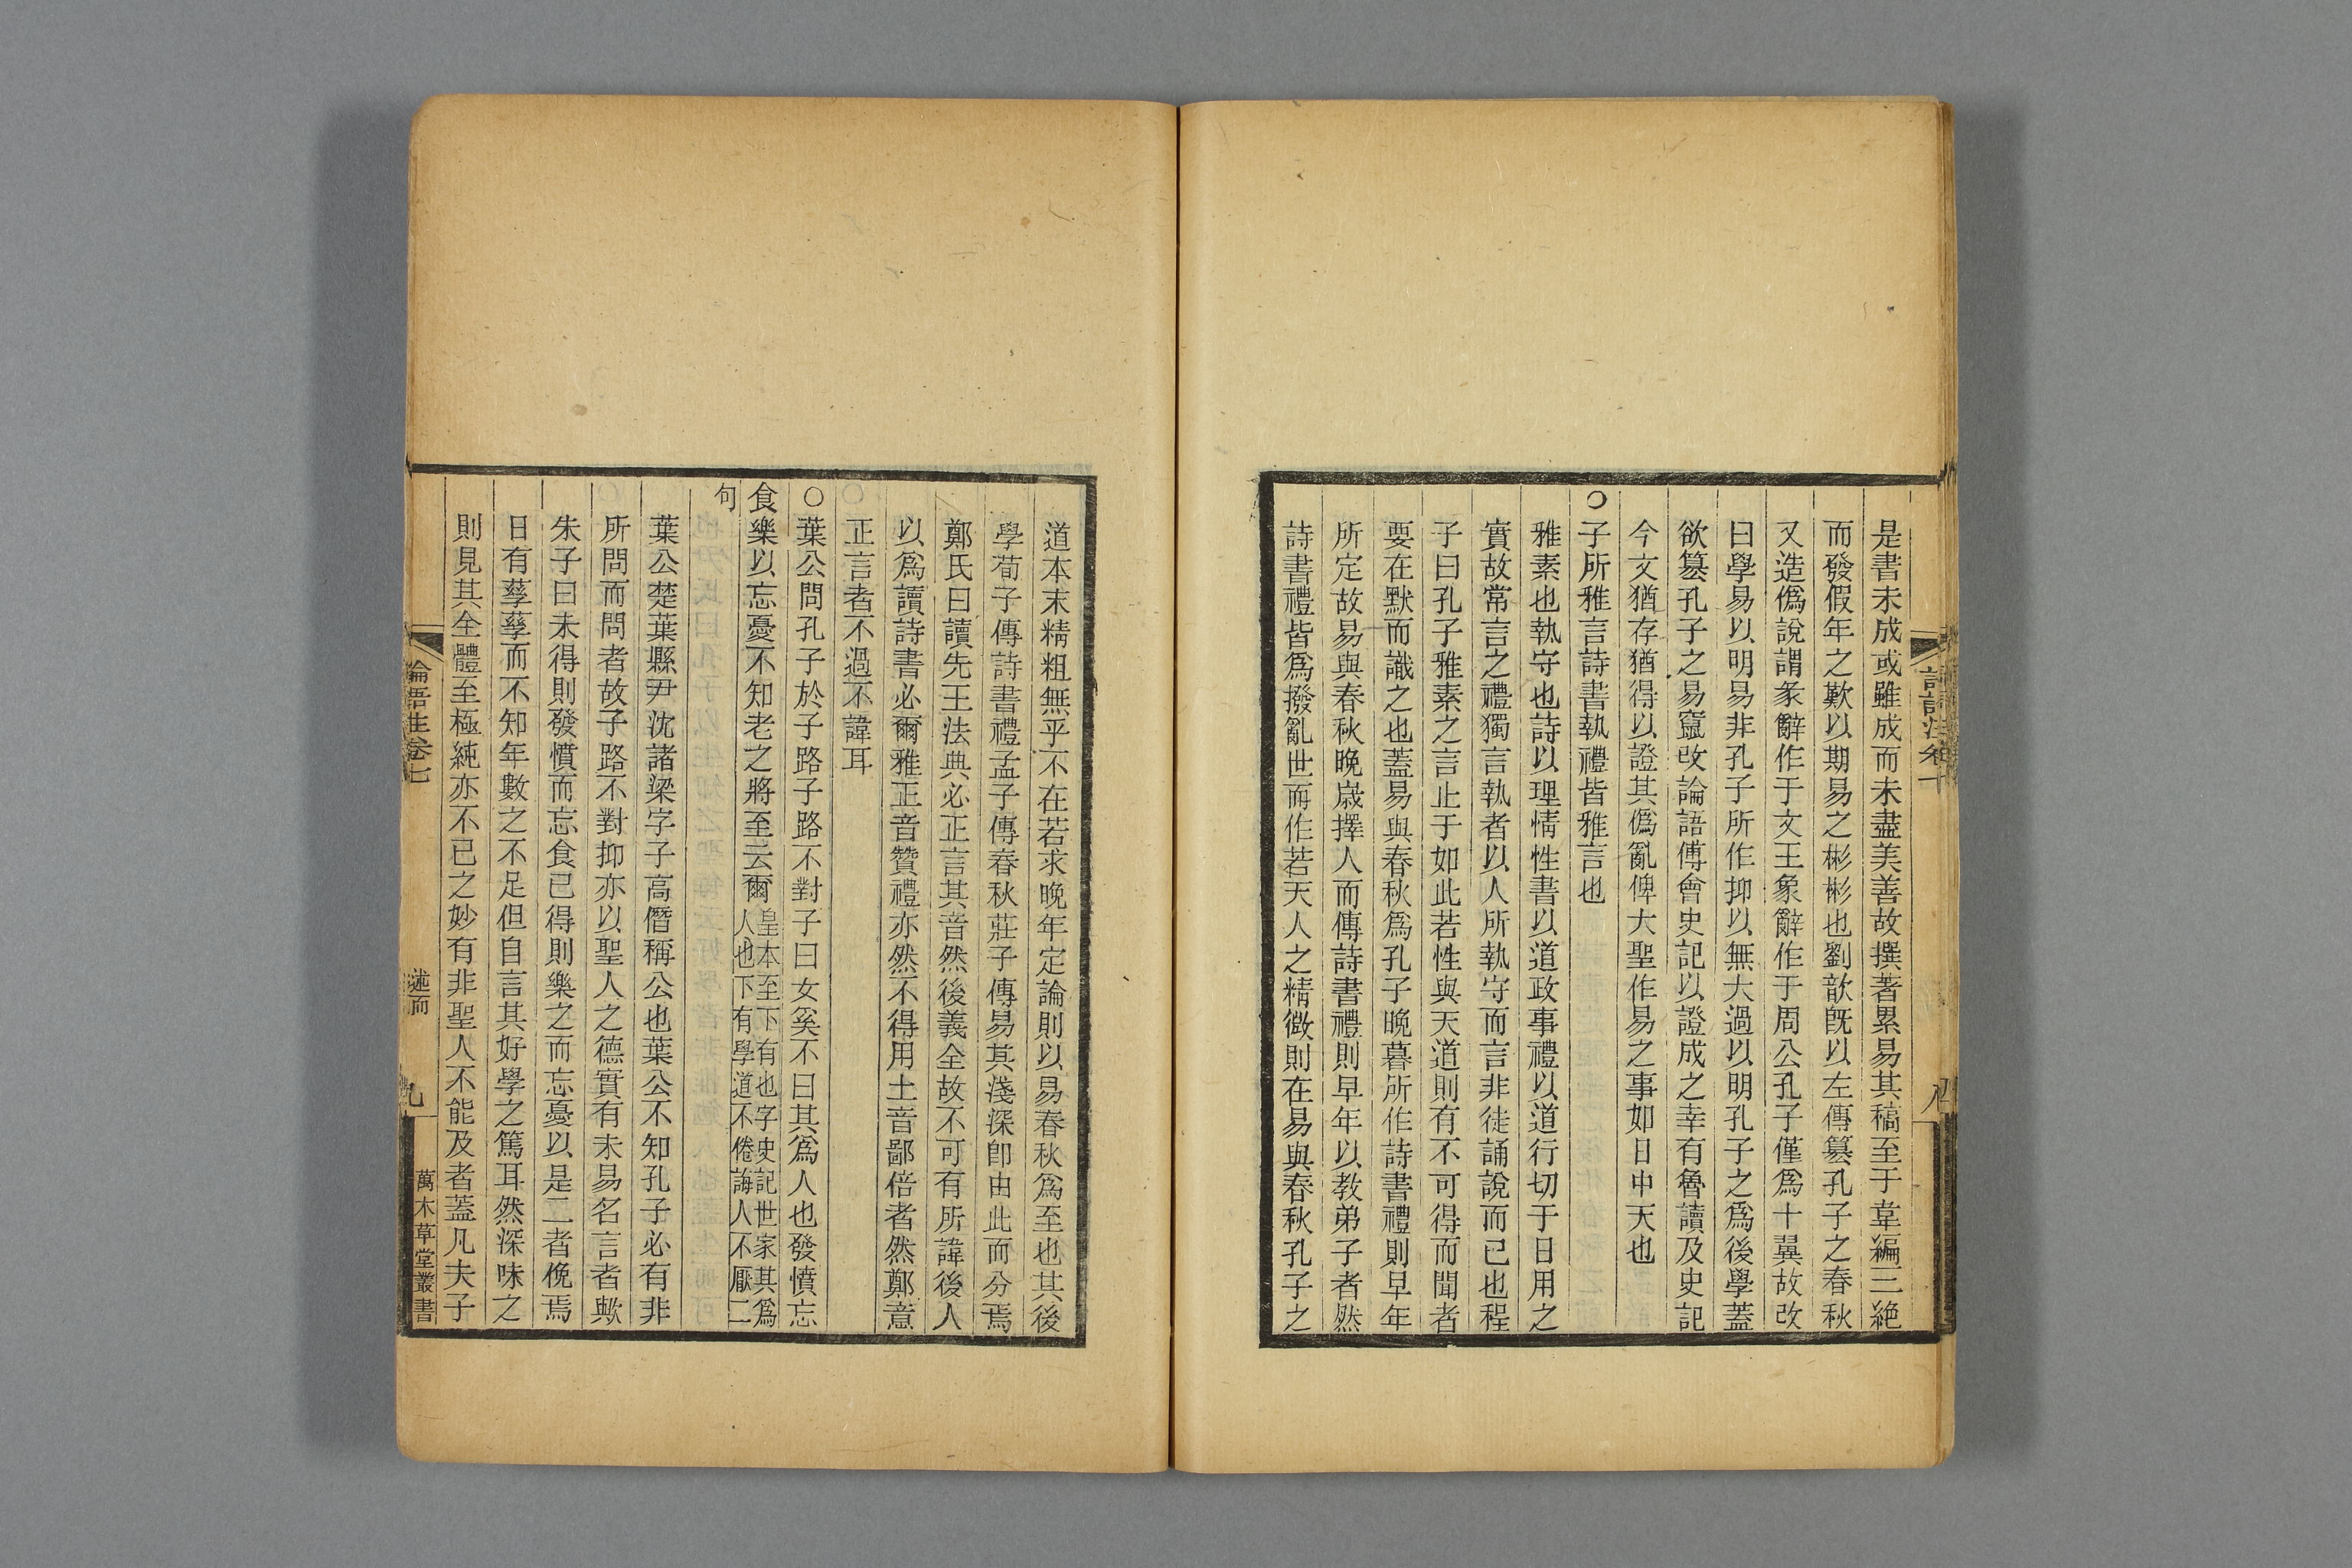 是書未成或雖成而未盡美善故撰著累易其稿至于韋編三絕
而發假年之歎以期易之彬彬也劉歆旣以左傳篡孔子之春秋
又造僞說謂彖辭作于文王象辭作于周公孔子僅爲十翼故改
曰學易以明易非孔子所作抑以無大過以明孔子之爲後學蓋
欲篡孔子之易竄改論語傅會史記以證成之幸有魯讀及史記
今文猶存猶得以證其僞亂俾大聖作易之事如日中天也
○子所雅言詩書執禮皆雅言也
雅素也執守也詩以理情性書以道政事禮以道行切于日用之
實故常言之禮獨言執者以人所執守而言非徒誦說而已也程
子曰孔子雅素之言止于如此若性與天道則有不可得而聞者
要在默而識之也蓋易與春秋爲孔子晚暮所作詩書禮則早年
所定故易與春秋晚歲擇人而傳詩書禮則早年以教弟子者然
詩書禮皆爲撥亂世而作若天人之精微則在易與春秋孔子之
道本末精粗無乎不在若求晚年定論則以易春秋爲至也其後
學荀子傳詩書禮孟子傳春秋莊子傳易其淺深卽由此而分焉
鄭氏曰讀先王法典必正言其音然後義全故不可有所諱後人
以爲讀詩書必爾雅正音贊禮亦然不得用土音鄙倍者然鄭意
正言者不過不諱耳
○葉公問孔子於子路子路不對子曰女奚不曰其爲人也發憤忘
食樂以忘憂不知老之將至云爾皇本至下有也字史記世家其爲
人也下有學道不倦誨人不厭二
句
葉公楚葉縣尹沈諸梁字子高僭稱公也葉公不知孔子必有非
所問而問者故子路不對抑亦以聖人之德實有未易名言者歟
朱子曰未得則發憤而忘食已得則樂之而忘憂以是二者俛焉
日有孳孳而不知年數之不足但自言其好學之篤耳然深味之
則見其全體至極純亦不已之妙有非聖人不能及者蓋凡夫子
論語注卷七
述而
九
萬木草堂叢書